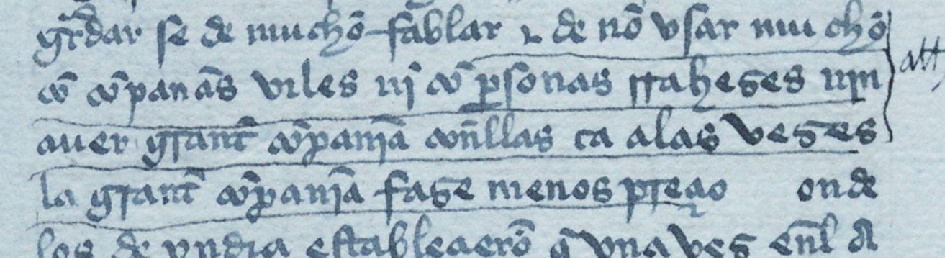 gr̃dar se de muchõ fablar ⁊ de nõ vsar muchõ
cõ cõpanãs viles nĩ cõ ꝑsonas rraheges nin att
auer grant̃ cõpanĩa coñllas ca alas veges
la grant̃ cõpanĩa fage menospreçio onde
los de yndia establecierõ q̃ vna veg eñl